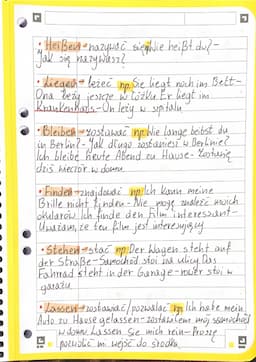 • Heißen → nazywać się np Wie heißt du? -
Jak się nazywasz?
• Liegen → leżeć np Sie liegt noch im Bett -
Ona leży jeszcze w łóżku Er liegt im
Krankenhaus - On leży w szpitalu
• Bleiben → zostawać np Wie lange bleibst du
in Berlin? - Jak długo zostaniesz w Berlinie?
Ich bleibe heute Abend zu Hause - Zostanę
dziś wieczór w domu
• Finden → znajdować np Ich kann meine
Brille nicht finden - Nie mogę znaleźć moich
okularów Ich finde den Film interessant -
Uważam, że ten film jest interesujący
• Stehen → stać np Der Wagen steht auf
der Straße - Samochód stoi na ulicy Das
Fahrrad steht in der Garage - rower stoi w
garażu
• Lassen → zostawiać/pozwalać np Ich habe mein
Auto zu Hause gelassen - zostawiłem mój samochód
w domu Lassen Sie mich rein - Proszę
pozwolić mi wejść do środka